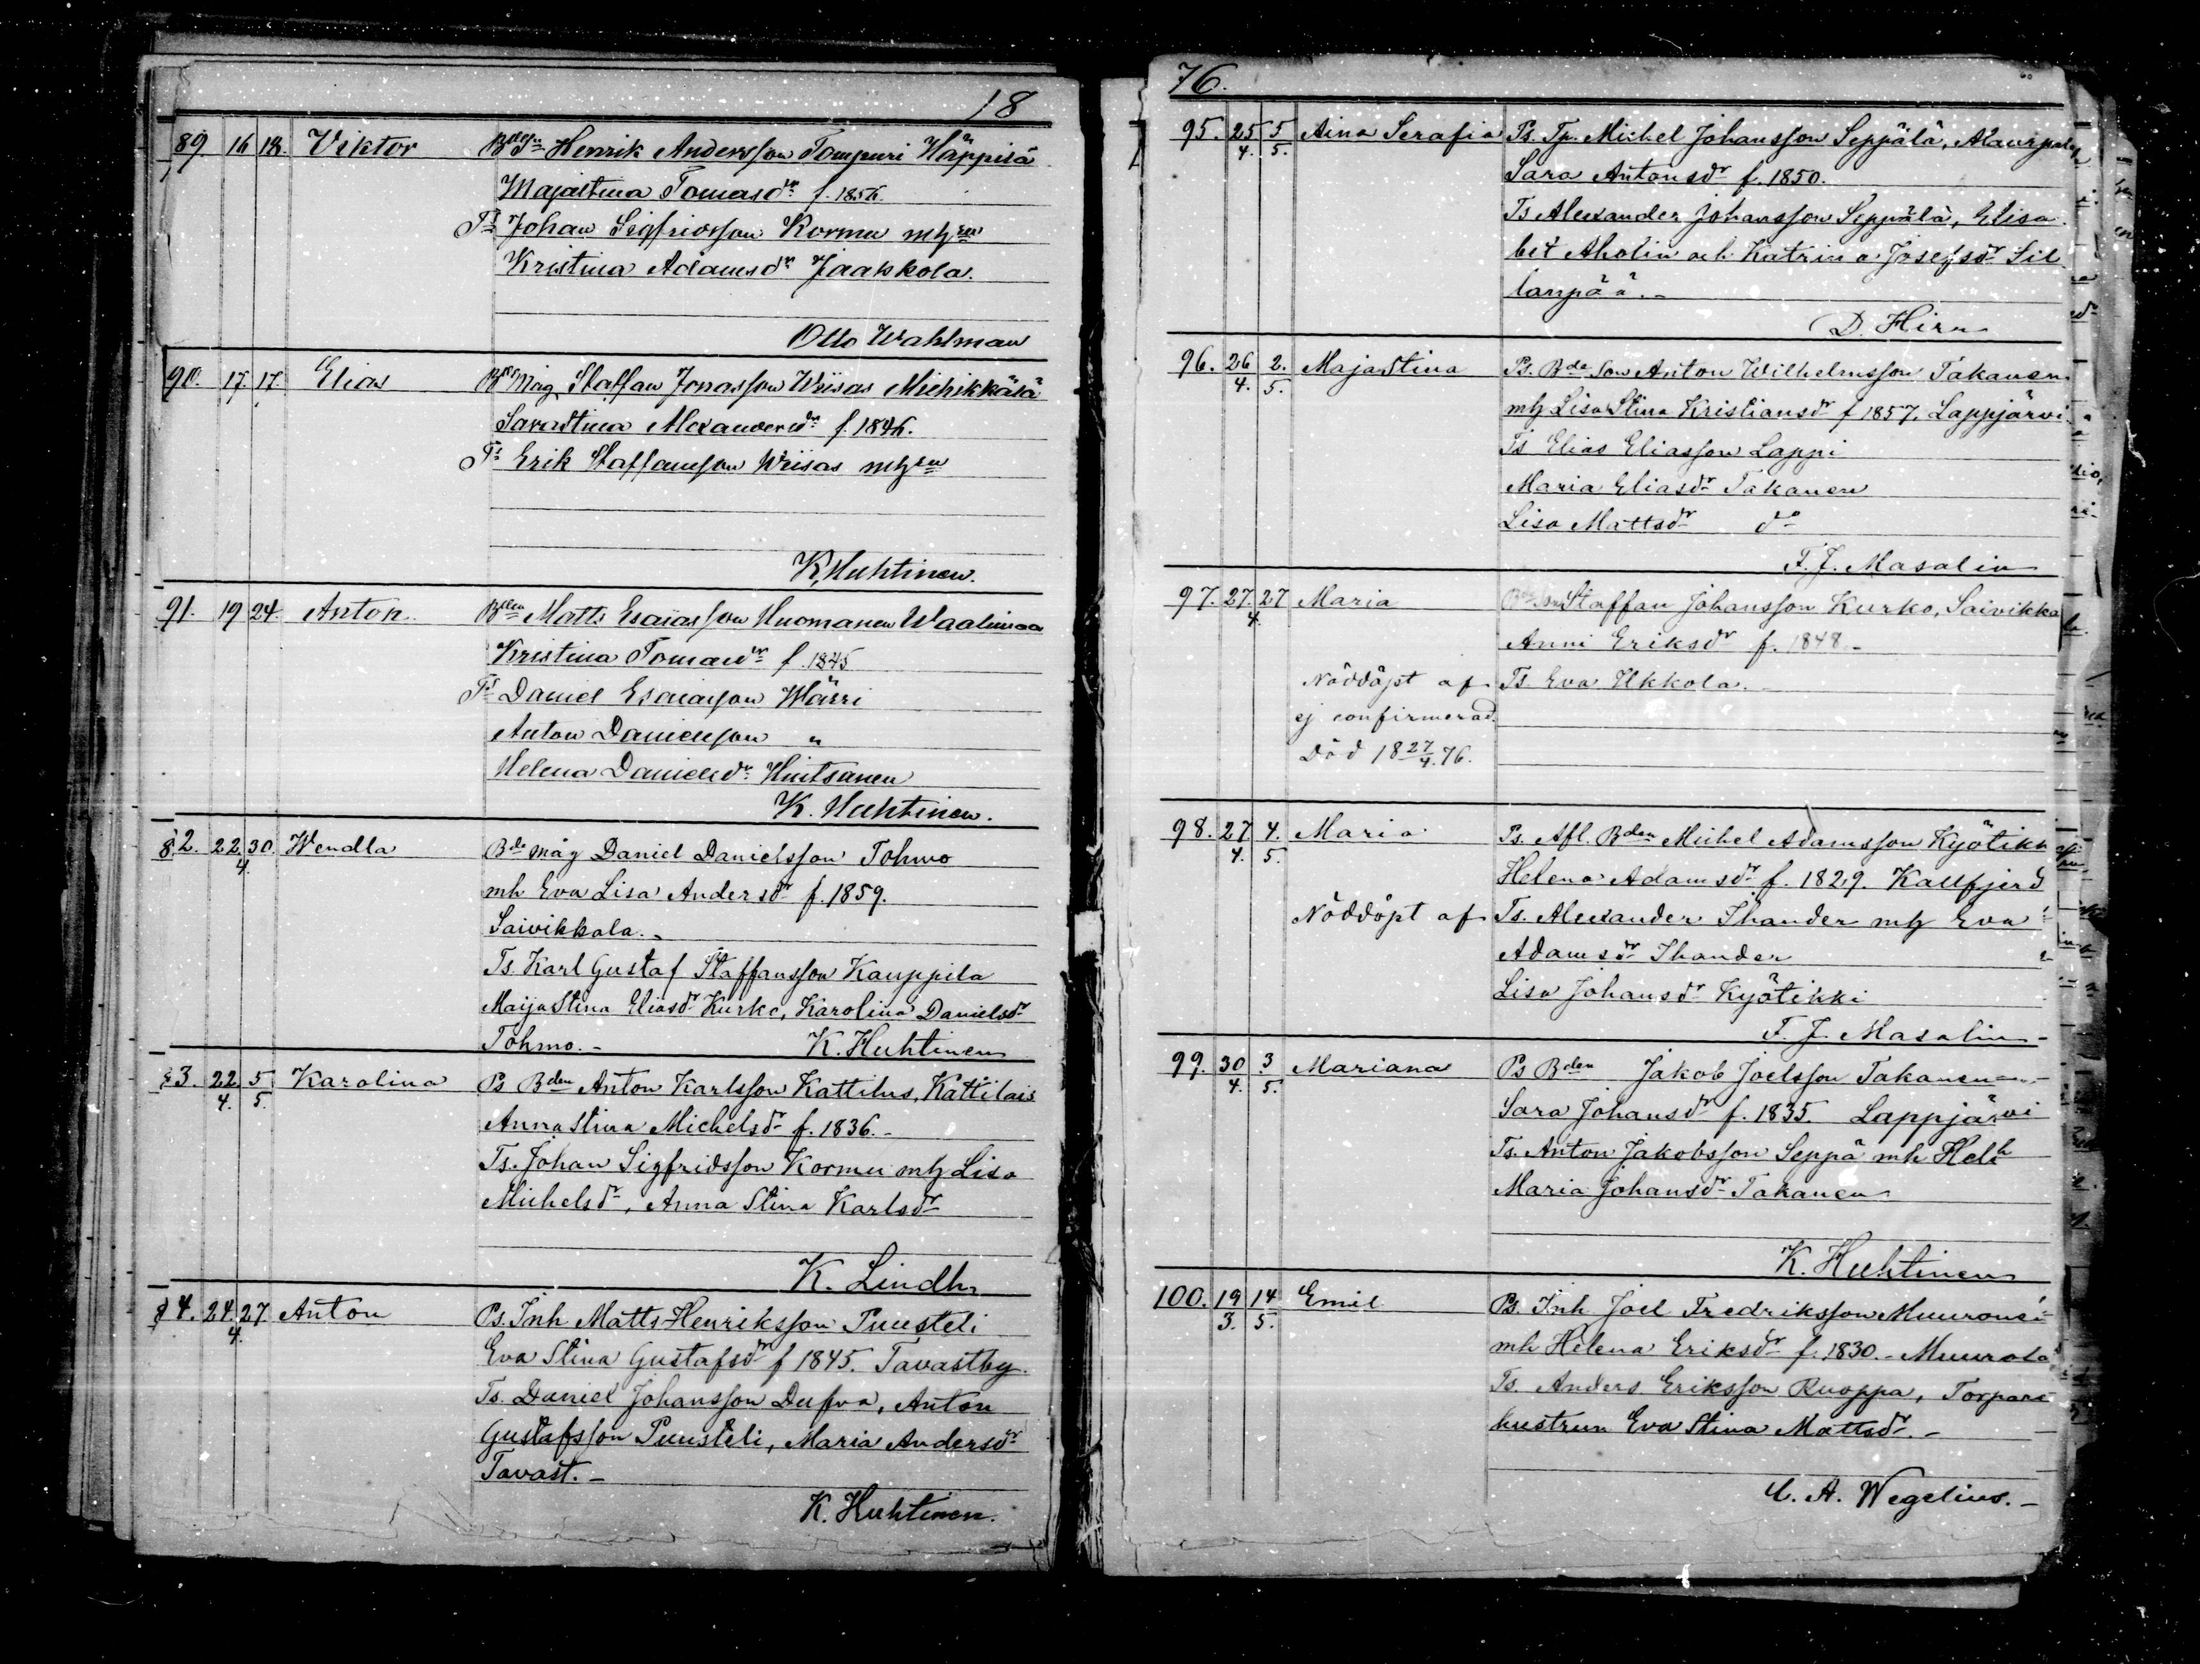 18
89. 16 18. Viktor Bdeson Henrik Andersson Tompuri Häppisä
Majastina Tomasdr f. 1856.
Ts Johan Sigfridsson Kormu mhru
Kristina Adamsdr Jaakkola.
Otto Wahlman
90. 17. 17. Elias Bdemåg Staffan Jonasson Wiisas Miehikkälä
Sarastina Alexandersdr f. 1846.
Ts Erik Staffansson Wiisas mhru
K. Huhtinen.
91. 19 24. Anton Bden Matts Esaiasson Huomanen Waalimaa
Kristina Tomasdr f. 1845
Ts Daniel Esaiasson Wärri
Anton Danielsson "
Helena Danielsdr Hintsanen
K. Huhtinen.
2. 22 30. Wendla Bde måg Daniel Danielsson Tohmo
4. mh Eva Lisa Andersdr f. 1859.
Saivikkala.
Ts. Karl Gustaf Staffansson Kauppila
Maija Stina Eliasdr Kurko, Karolina Danielsdr
Tohmo.- K. Huhtinen
3. 22 5 Karolina Ps Bden Anton Karlsson Kattilus, Kattilais
4. 5. Anna Stina Michelsdr f. 1836.-
Ts. Johan Sigfridsson Kormu mh Lisa
Michelsdr, Anna Stina Karlsdr
K. Lindh
4. 24. 27 Anton Ps. Inh Matts Henriksson Puusteli
4. Eva Stina Gustafsdr f 1845. Tavastby.
Ts. Daniel Johansson Dufva, Anton
Gustafsson Puusteli, Maria Andersdr
Tavast.-
K. Huhtinen.
76.
95. 25 5 Aina Serafia Ps. Tp. Michel Johansson Seppälä,
4. 5. Sara Antonsdr f. 1850.
Ts Alexander Johansson Seppälä, Elisa
bet Aholin och Katrina Josefsdr Sil
lanpää.-
D. Hirn
96. 26 2. MajaStina Ps. Bde Son Anton Wilhelmsson Takanen
4. 5. mh Lisa Stina Kristiansdr f 1857, Lappjärvi
Ts Elias Eliasson Lappi
Maria Eliasdr Takanen
Lisa Mattsdr do
F. J. Masalin
97. 27. 27 Maria Bde son Staffan Johansson Kurko, Saivikka
4. Anni Eriksdr f. 1848-
Nöddöpt af Ts. Eva Ukkola.
ej confirmerad.
Död 18 27/4. 76.
98. 27 4. Maria Ps. Afl. Bden Michel Adamsson Kyötikk
4. 5. Helena Adamsdr f. 1829. Kallfjerd
Nöddöpt af Ts. Alexander Ihander mh Eva
Adamsdr Ihander
Lisa Johansdr Kyötikki
F. J. Masalin-
99. 30 3 Mariana Ps Bden Jakob Joelsson Takanen
4. 5. Sara Johansdr f. 1835. Lappjärvi
Ts. Anton Jakobsson Seppä mh Hel
Maria Johansdr Takanen
K. Huhtinen
100. 19 14 Emil Ps. Inh Joel Fredriksson
3. 5. mh Helena Eriksdr f. 1830.- Muurola
Ts. Anders Eriksson Ruoppa, Torpare
hustrun Eva Stina Mattsdr.-
C. A. Wegelius.-